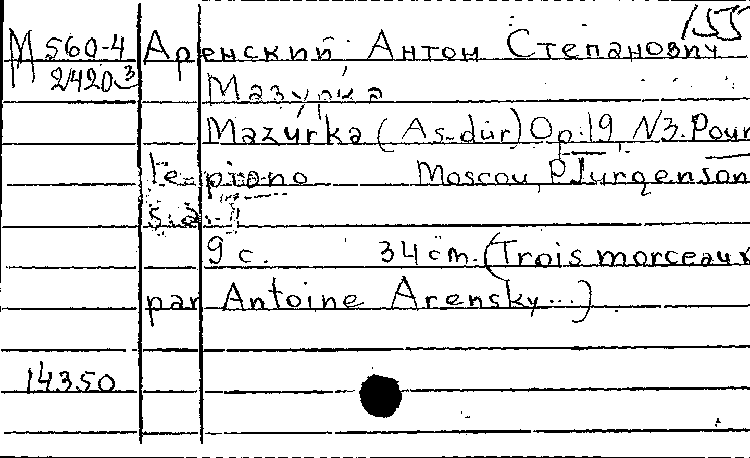 155
М 560-4 Аренский, Антон Степанович
2420-3 Мазурка
Mazurka (As-dur) Op.19, N3. Pour
le piano Moscou, P. Jurgenson
s.a.
9 с. 34 cm. (Trois morceaux
par Antoine Arensky...)
14350